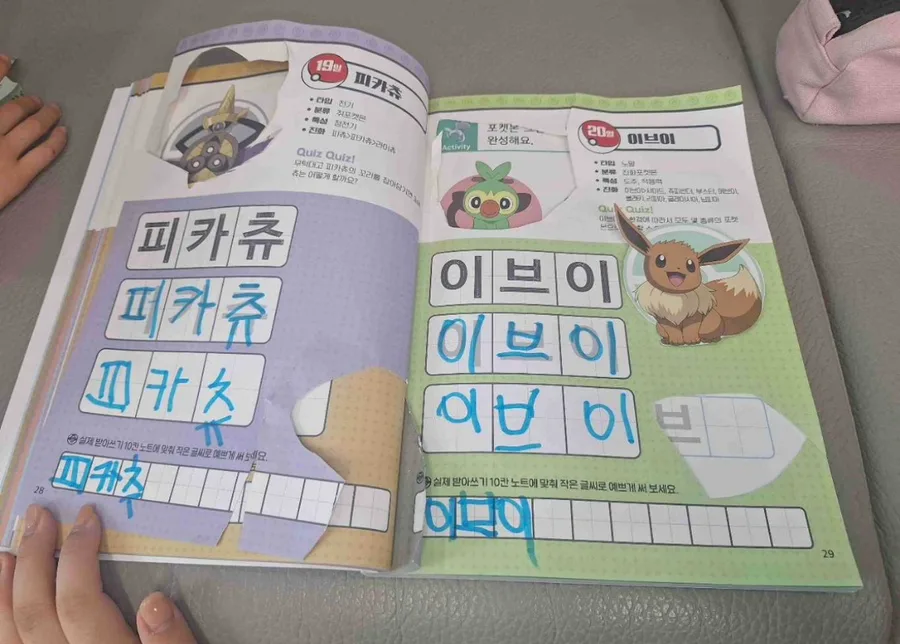 19일 피카츄
• 타입 전기
• 분류 쥐포켓몬
• 특성 정전기
• 진화 피츄>피카츄>라이츄
Quiz Quiz!
무턱대고 피카츄의 꼬리를 잡아당기면
츄는 어떻게 할까요?
피카츄
퍼카츄
피카츄
실제 받아쓰기 10칸 노트에 맞춰 작은 글씨로 예쁘게 써 보세요.
피카츄
28
Activity
포켓몬
완성해요.
20일 이브이
• 타입 노말
• 분류 진화포켓몬
• 특성 도주, 적응력
• 진화
Quiz!
이브이
이브이
이브이
브
실제 받아쓰기 10칸 노트에 맞춰 작은 글씨로 예쁘게 써 보세요.
이브이
29